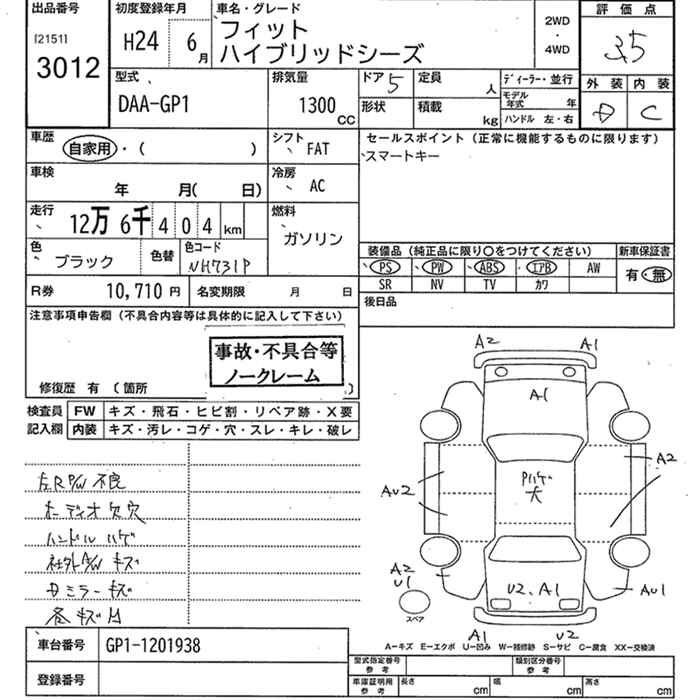 出品番号
[2151]
3012
初度登録年月
H24 6月
車名・グレード
フィット
ハイブリッドシーズ
2WD
・
4WD
評価点
3.5
外装 内装
D C
型式
DAA-GP1
排気量
1300 CC
ドア 5
定員 人
形状
積載 kg
ディーラー・並行
モデル年式 年
ハンドル 左・右
車歴
自家用・( )
シフト
FAT
セールスポイント(正常に機能するものに限ります)
スマートキー
車検
年 月( 日)
冷房
AC
走行
12万 6千 4 0 4 km
燃料
ガソリン
色
ブラック
色替
色コード
NH731P
装備品(純正品に限り○をつけてください)
PS PW ABS エアB AW
SR NV TV カワ
新車保証書
有・無
R券 10,710円
名変期限 月 日
後日品
注意事項申告欄(不具合内容等は具体的に記入して下さい)
事故・不具合等
ノークレーム
修復歴 有 (箇所 )
検査員
記入欄
FW キズ・飛石・ヒビ割・リペア跡・X要
内装 キズ・汚レ・コゲ・穴・スレ・キレ・破レ
左R P/W 不良
オーディオ欠穴
ハンドルハゲ
社外A/W キズ
D ミラーキズ
各キズ凹
A2 A1
A1
A2
AU2
大
A2
U1
U2.A1
AU1
スペア
A1 U2
A-キズ E-エクボ U-凹み W-補修跡 S-サビ C-腐食 XX-交換済
車台番号 GP1-1201938
登録番号
型式指定番号
参考
類別区分番号
参考
車庫証明用
参考
長さ cm
幅 cm
高さ cm